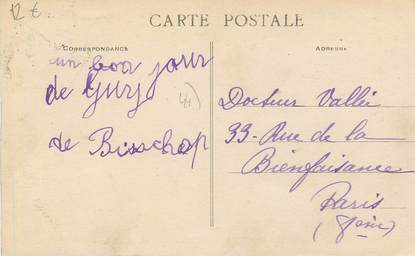 12 €
CARTE POSTALE
CORRESPONDANCE
un bon jour
de Gury
de Bisschop
ADRESSE
Docteur Vallée
33 - Rue de la
Bienfaisance
Paris
(8eme)